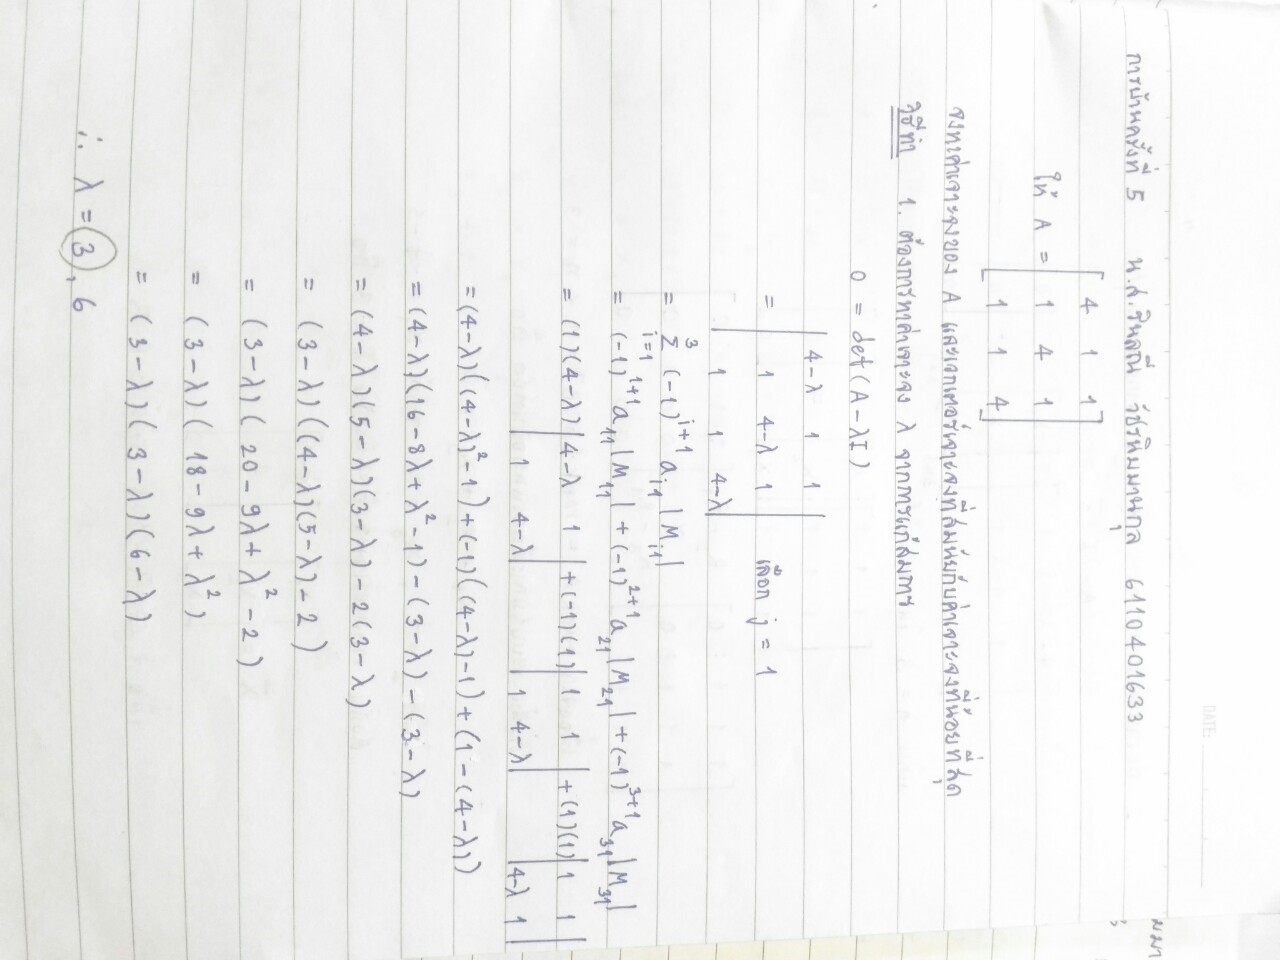 DATE:
การบ้านครั้งที่ 5 น.ส.รินลณี วัชรนิมมานกุล 6110401633
ให้ A = [ 4 1 1
1 4 1
1 1 4 ]
จงหาค่าเจาะจงของ A และเวกเตอร์เจาะจงที่สมนัยกับค่าเจาะจงที่น้อยที่สุด
วิธีทำ 1. ต้องการหาค่าเจาะจง λ จากการแก้สมการ
0 = det(A-λI)
= | 4-λ 1 1 |
| 1 4-λ 1 | เลือก j = 1
| 1 1 4-λ |
= Σ_{i=1}^{3} (-1)^{i+1} a_{i1} |M_{i1}|
= (-1)^{1+1} a_{11} |M_{11}| + (-1)^{2+1} a_{21} |M_{21}| + (-1)^{3+1} a_{31} |M_{31}|
= (1)(4-λ) | 4-λ 1 | + (-1)(1) | 1 1 | + (1)(1) | 1 1 |
| 1 4-λ | | 1 4-λ | | 4-λ 1 |
= (4-λ)((4-λ)²-1) + (-1)((4-λ)-1) + (1-(4-λ))
= (4-λ)(16-8λ+λ²-1) - (3-λ) - (3-λ)
= (4-λ)(5-λ)(3-λ) - 2(3-λ)
= (3-λ)((4-λ)(5-λ) - 2)
= (3-λ)(20-9λ+λ²-2)
= (3-λ)(18-9λ+λ²)
= (3-λ)(3-λ)(6-λ)
∴ λ = 3, 6